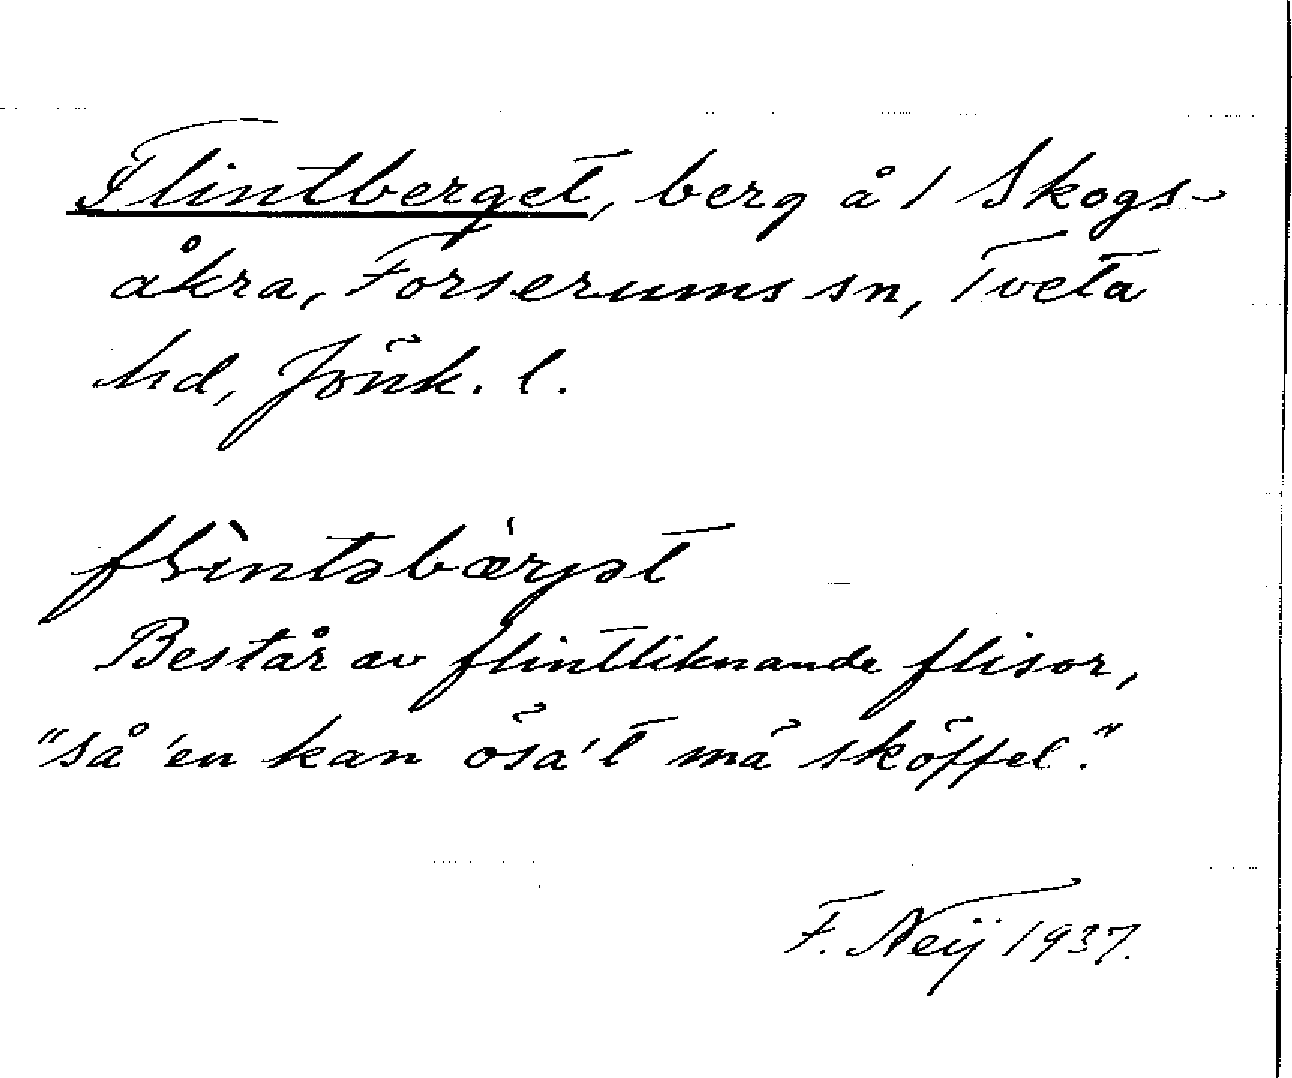 Flintberget, berg å 1 Skogs-
åkra, Forserums sn, Tveta
hd, Jönk. l.
flìntsbær̍jət
Består av flintliknande flisor,
"så 'en kan ösa 't mä sköffel."
F. Neij 1937.